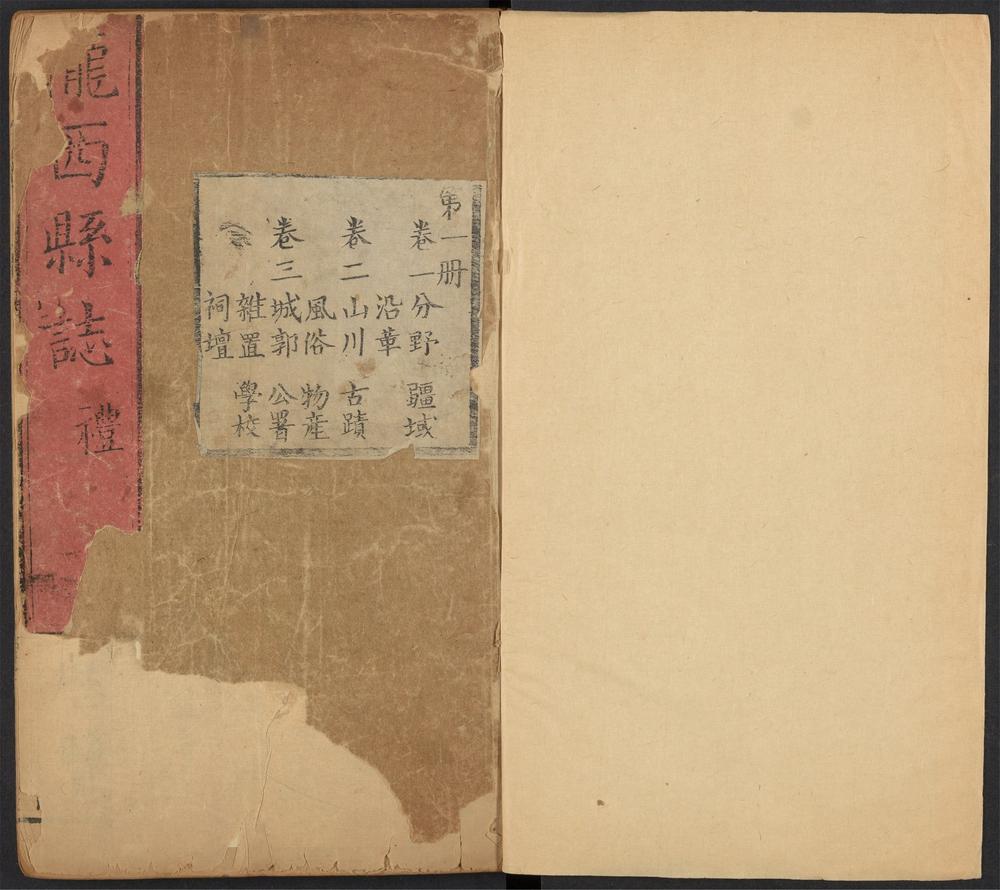 第一册
卷一分野 疆域
沿革
卷二山川 古蹟
風俗 物産
卷三城郭 公署
雜置 學校
祠壇
隴西縣誌 禮